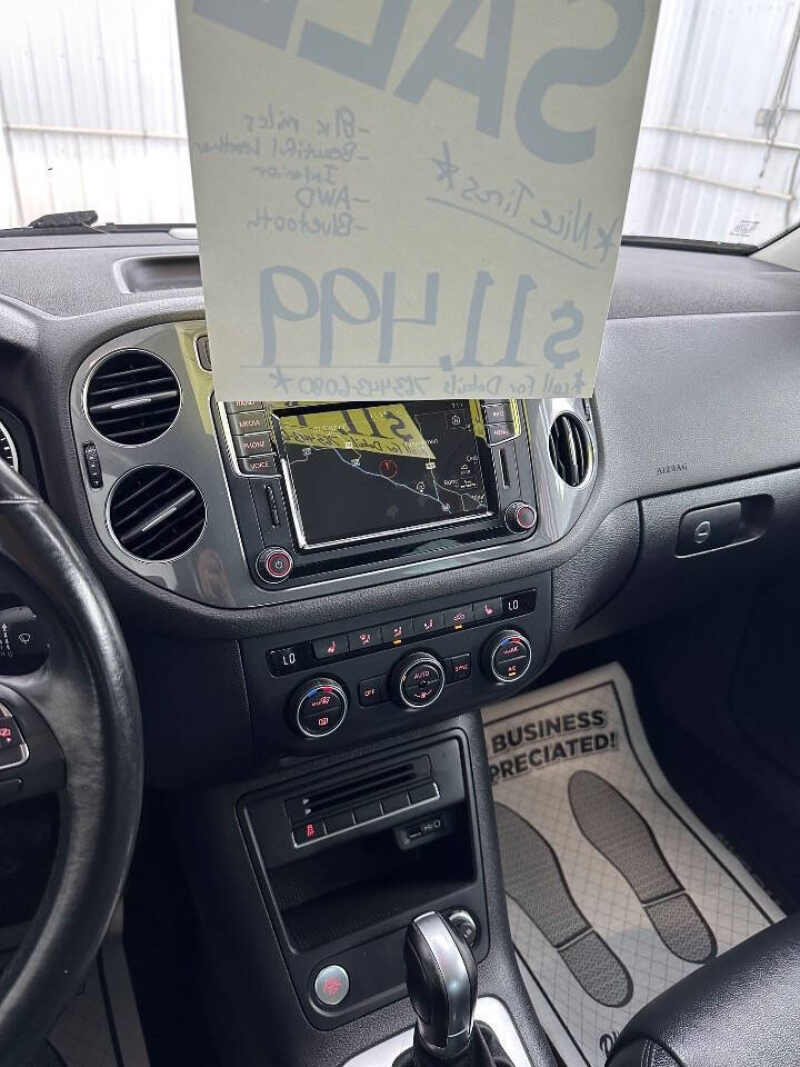 SALE
-81k miles
-Beautiful Leather
Interior
-AWD
-Bluetooth
*Nice Tires*
$11,499
*call For Details 763-443-6080*
MEDIA
PHONE
VOICE
NAV
MENU
AIRBAG
LO
LO
OFF
AUTO
SYNC
A/C
BUSINESS
PRECIATED!